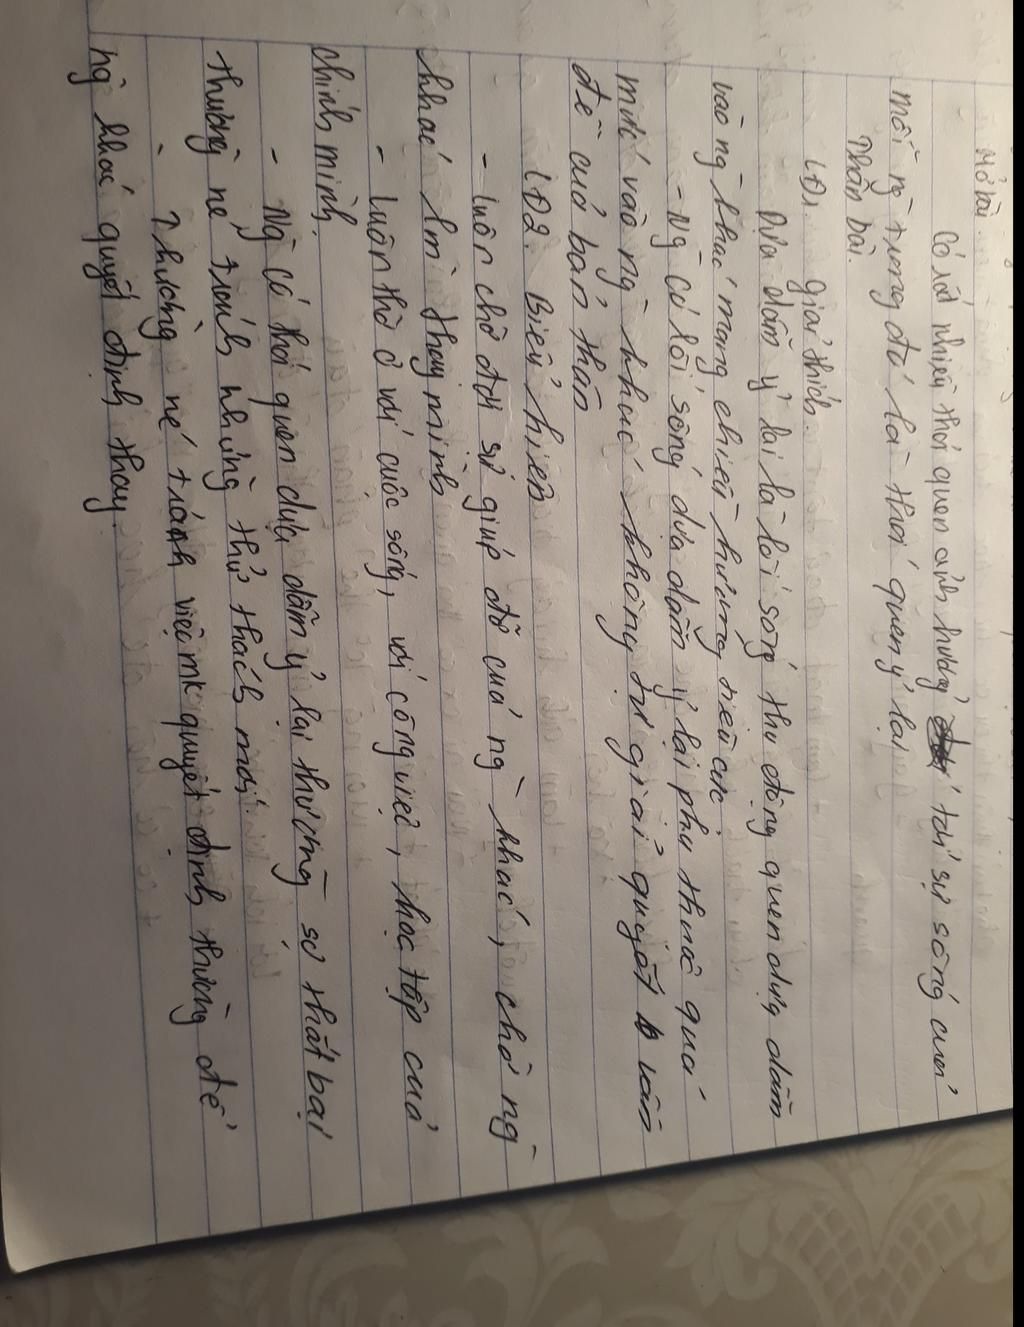 Mở bài.
Có rất nhiều thói quen ảnh hưởng tới sự sống cuả
mỗi ng trong đó là thói quen ỷ lại
Thân bài.
LĐ1. giải thích.
Dựa dẫm ỷ lại là lối sống thụ động quen dựa dẫm
vào ng khác mang chiều hướng tiêu cực
- Ng có lối sống dựa dẫm ỷ lại phụ thuộc quá
mức vào ng khác không tự giải quyết vấn
đề của bản thân
LĐ2. Biểu hiện
- luôn chờ đợi sự giúp đỡ cuả ng khác, chờ ng
khác làm thay mình
- luôn thờ ơ với cuộc sống, với công việc, học tập cuả
chính mình.
- Ng có thói quen dựa dẫm ỷ lại thường sợ thất bại
thường né tránh những thử thách mới.
- Thường né tránh việc mk quyết định thường để
ng khác quyết định thay.